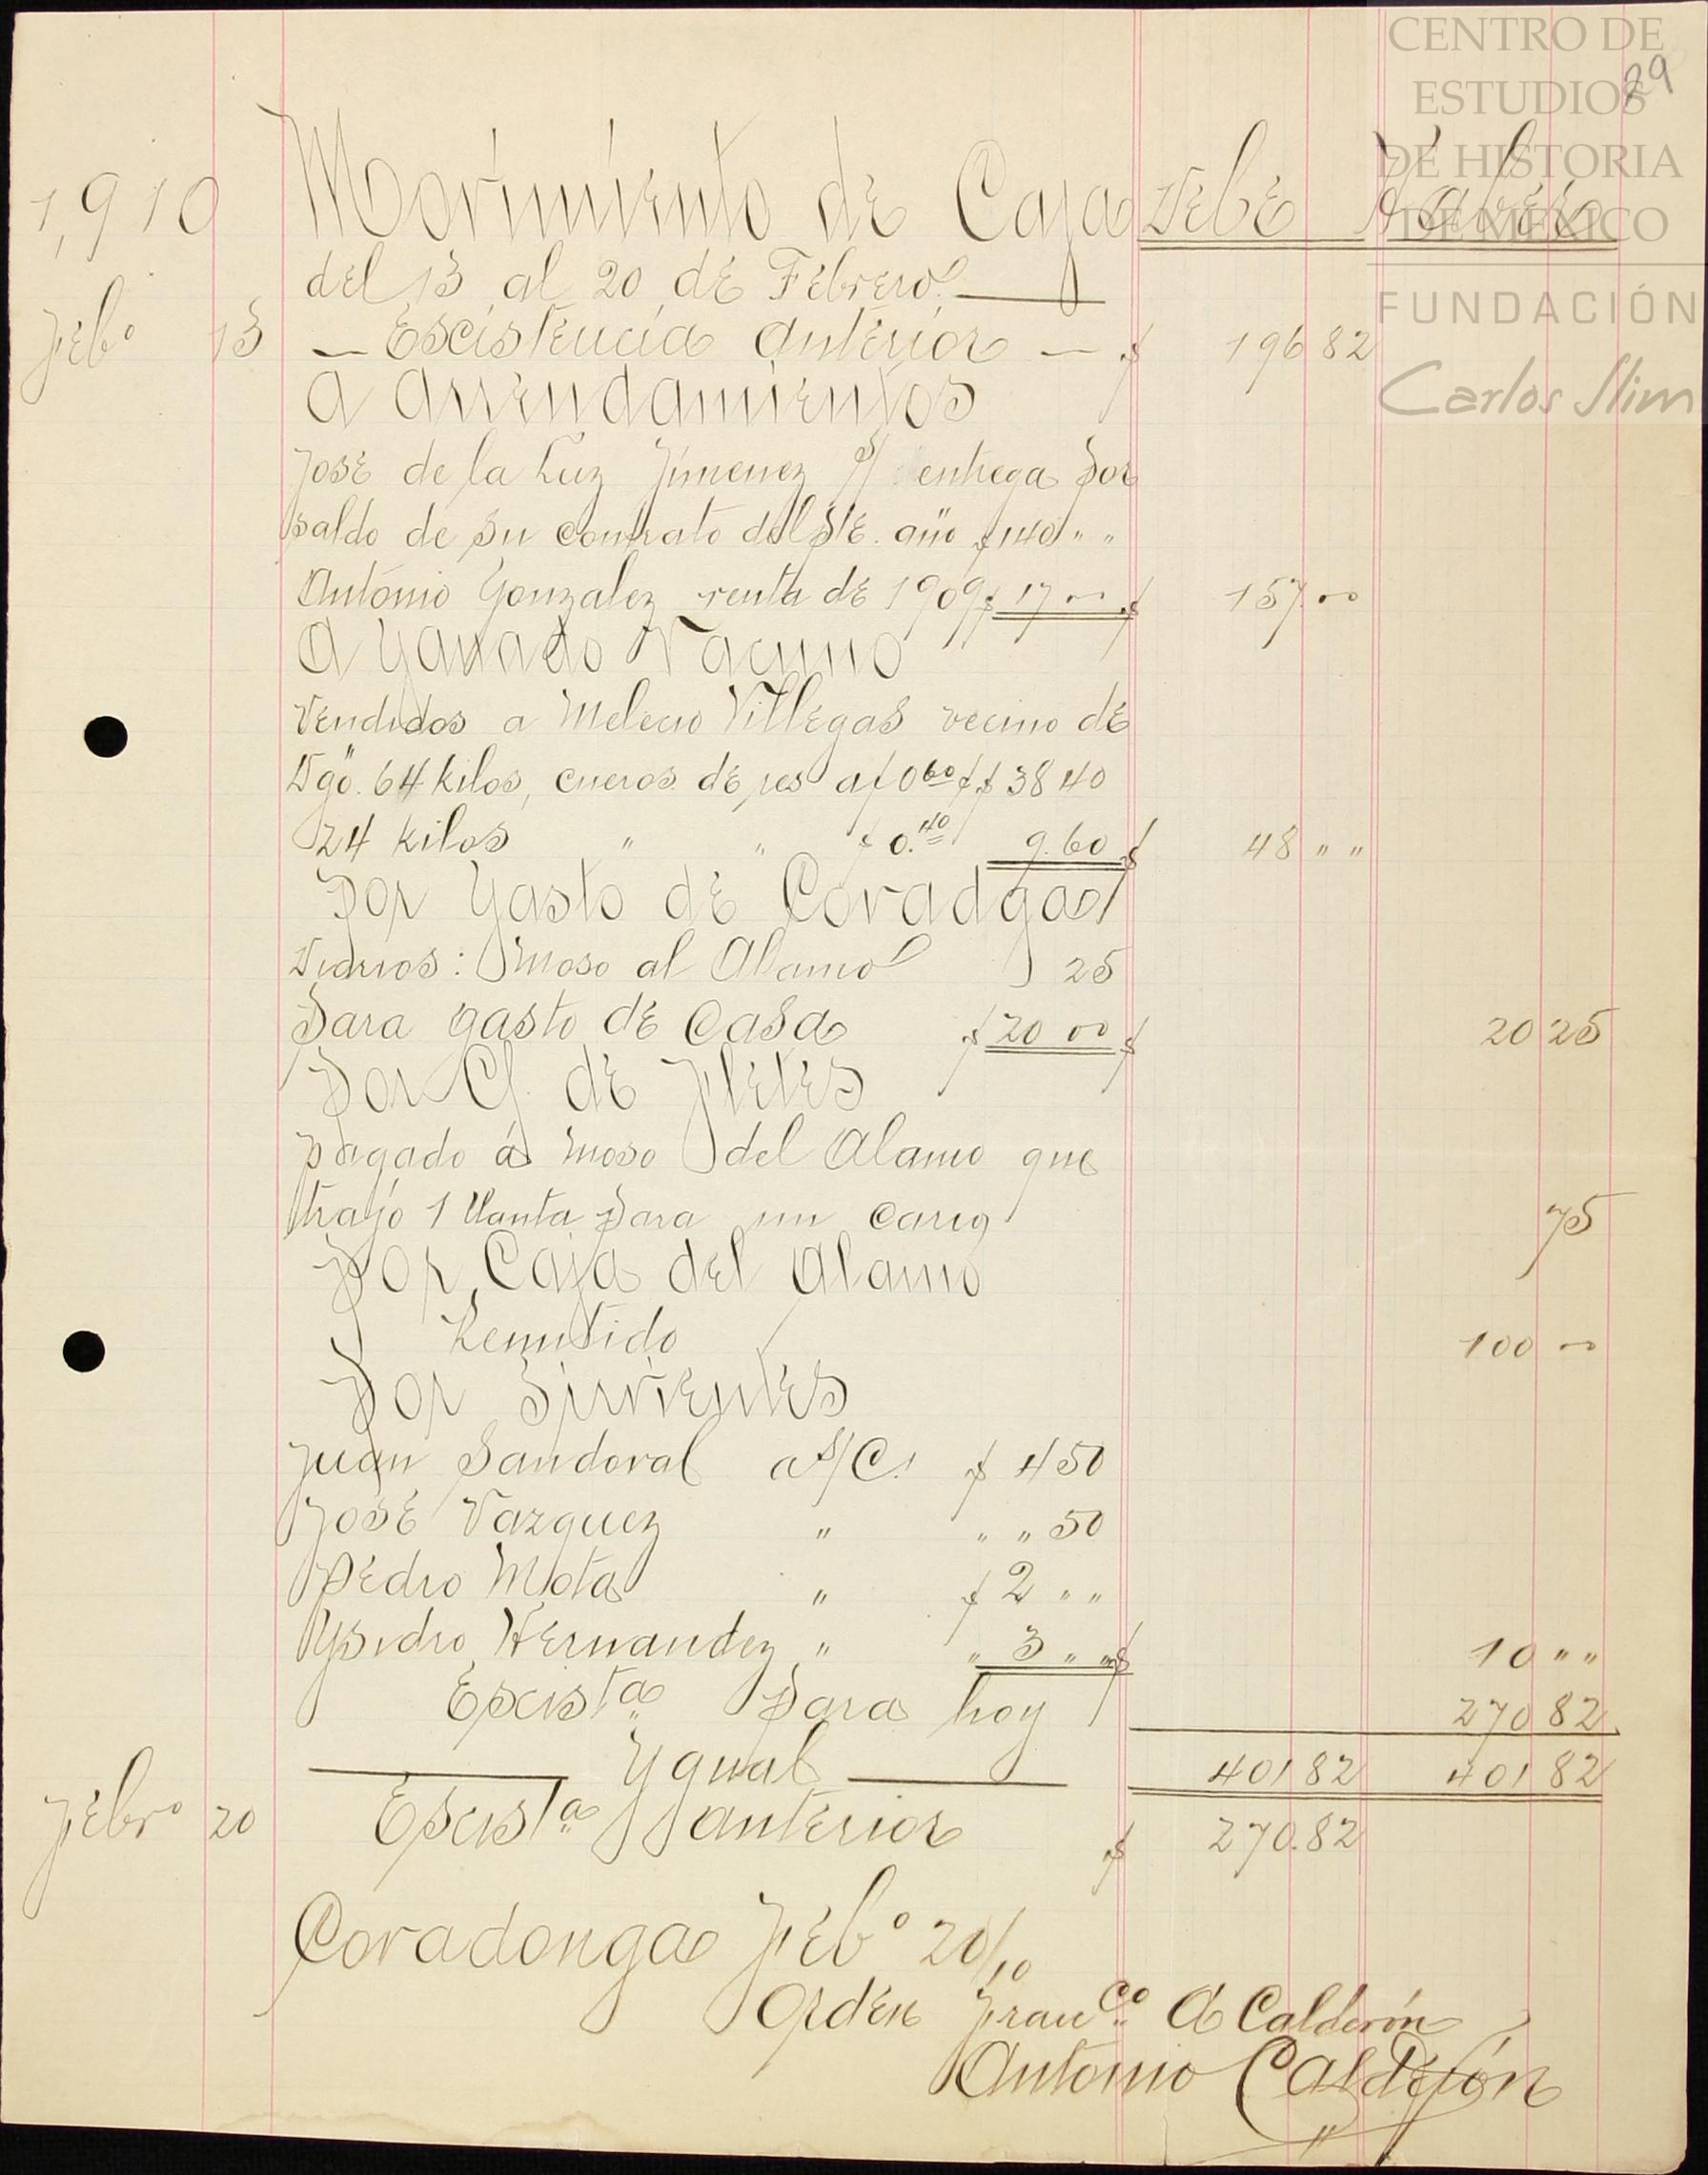 CENTRO DE
ESTUDIOS
DE HISTORIA
DE MÉXICO
FUNDACIÓN
Carlos Slim
29
1,910 Movimiento de Caja Debe Haber
del 13 al 20 de Febrero.
Feb° 13 — Escistencia anterior — $ 196 82
a arrendamientos
José de la Luz Jimenez S/ entrega por
saldo de su contrato del pte. año $ 140 " "
Antonio Gonzalez renta de 1909 $ 17 00 $ 157 00
a Ganado Vacuno
Vendidos a Melecio Villegas vecino de
Dgo. 64 kilos, cueros de res a $ 0 60 $ 38 40
24 kilos " " $ 0.40 9.60 $ 48 " "
Por Gasto de Covadga
Diarios: Moso al Alamo 25
Para gasto de Casa $ 20 00 $ 20 25
Por C/ de Fletes
pagado á moso del Alamo que
trajo 1 llanta para un carro 75
Por Caja del Alamo
Remitido 100 00
Por Sirvientes
Juan Sandoval a S/C. $ 4 50
José Vazquez " " " 50
Pedro Mota " $ 2 " "
Ysidro Hernandez " " 3 " " $ 10 " "
Escista para hoy 270 82
Ygual 401 82 401 82
Febro 20 Escista anterior $ 270.82
Covadonga Feb° 20/10
Orden Franco. A Calderón
Antonio Calderón